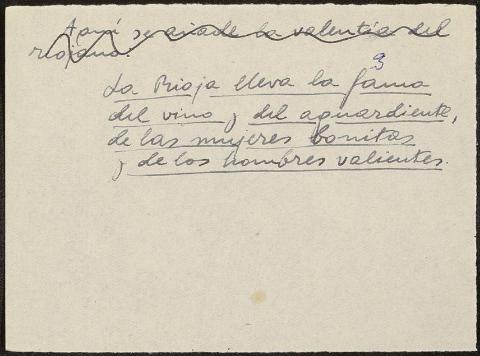 Aquí se añade la valentía del
riojano:
3
La Rioja lleva la fama
del vino y del aguardiente,
de las mujeres bonitas
y de los hombres valientes.